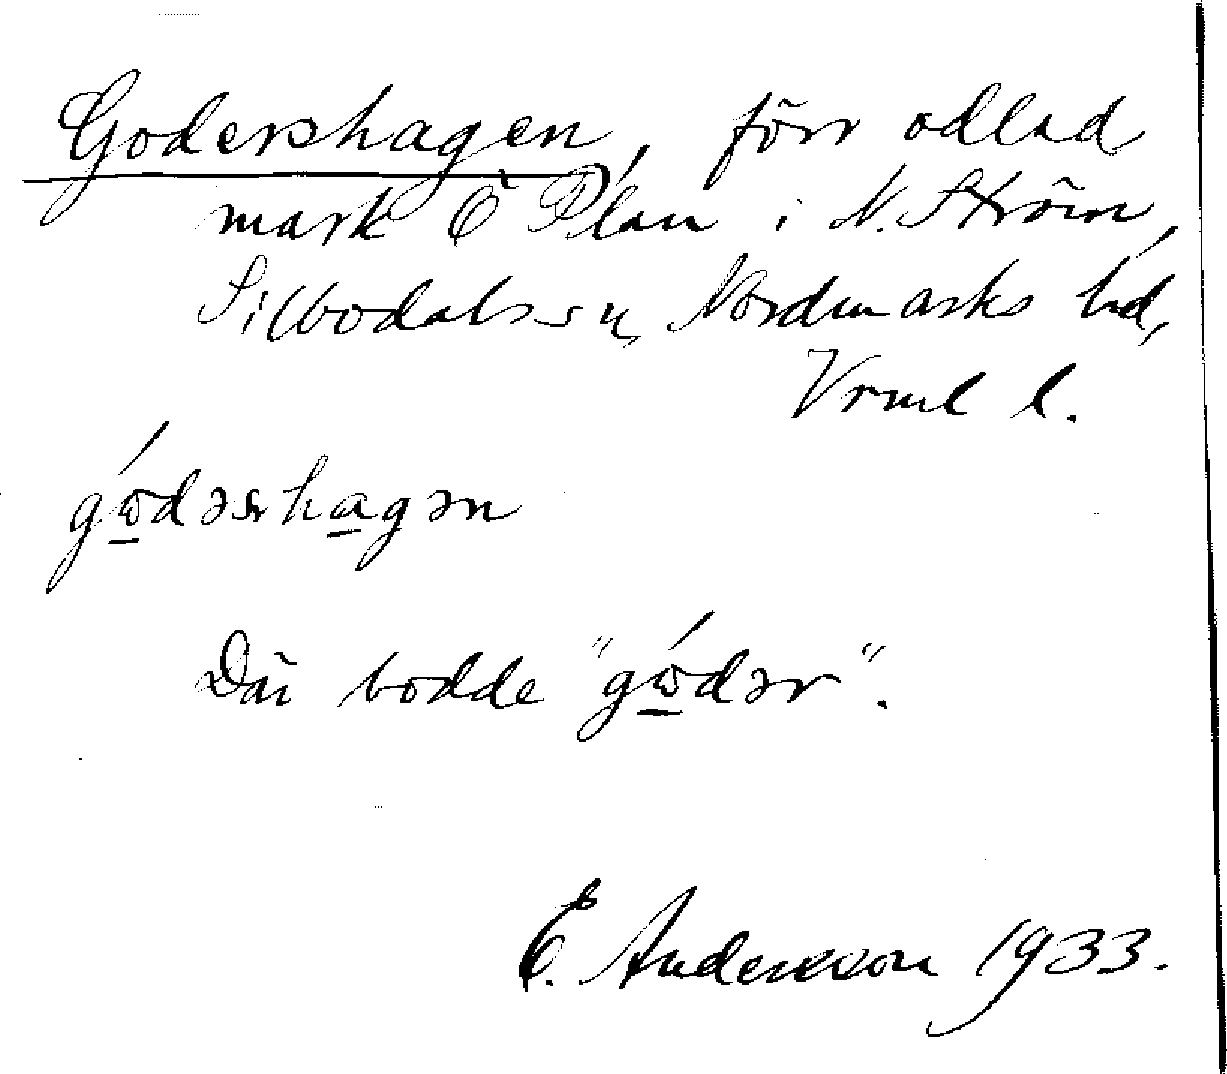 Godershagen, förr odlad
mark Ö Plan i N. Ström,
Silbodals sn, Nordmarks hd,
Vrml l.
gώdərshagən
Där bodde "gώdər".
E. Andersson 1933.